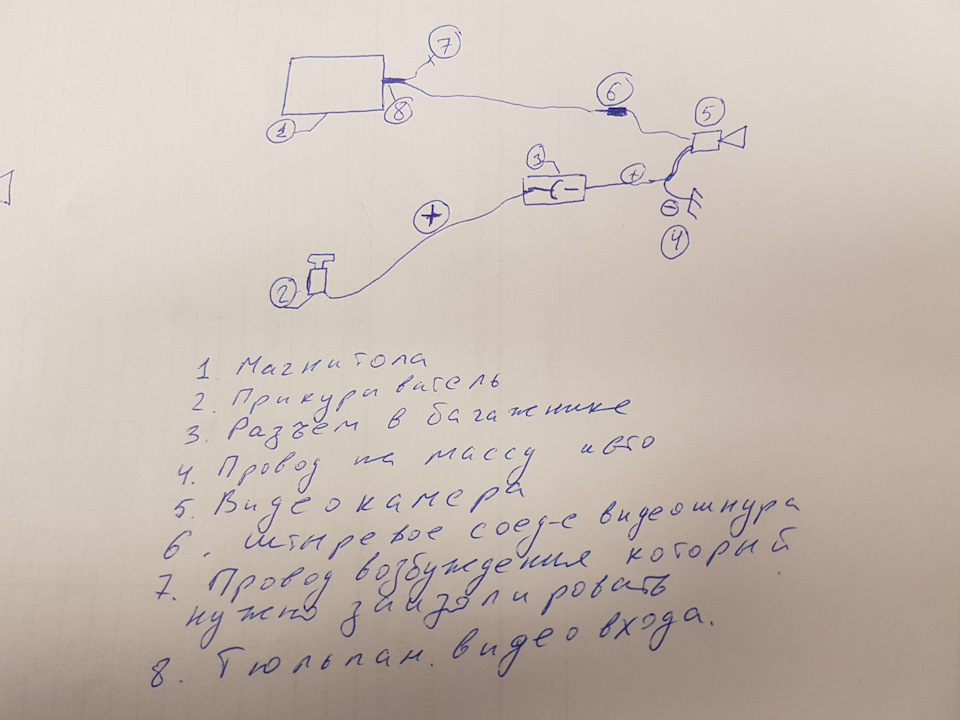 7
8
6
5
1
3
+
4
+
2
1 Магнитола
2. Прикуриватель
3. Разъем в багажнике
4. Провод на массу авто
5. Видеокамера
6. Штыревое соед-е видеошнура
7. Провод возбуждения который
нужно заизолировать
8. Тюльпан. видео входа.